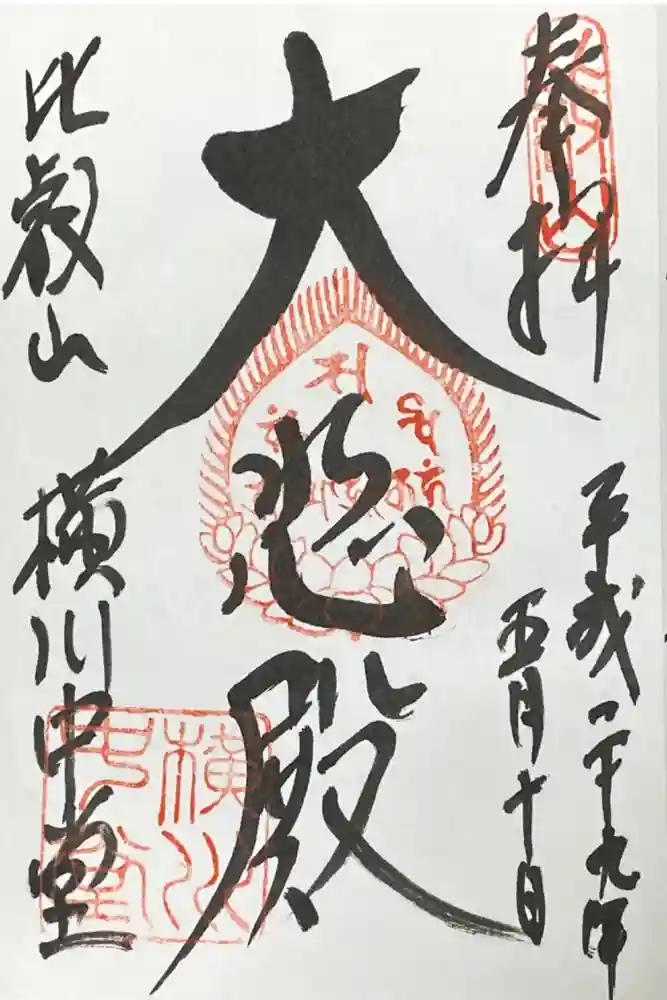 奉拝
平成二十九年
五月十日
大悲殿
比叡山
横川中堂
横川中堂